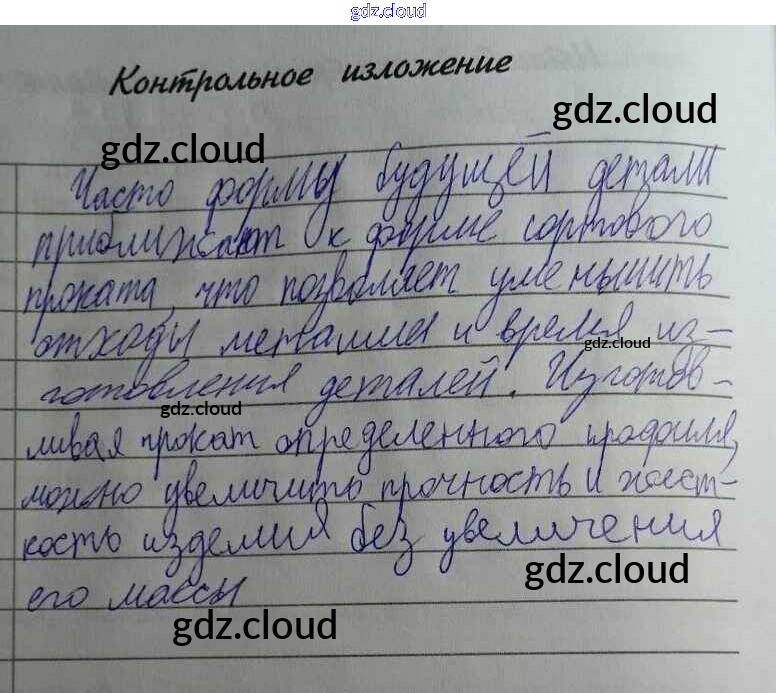 gdz.cloud
Контрольное изложение
gdz.cloud
gdz.cloud
Часто формы будущей детали
приближают к форме сортового
проката, что позволяет уменьшить
отходы металла и время из-
gdz.cloud
готовления деталей. Изготов-
gdz.cloud
ливая прокат определенного профиля,
можно увеличить прочность и жест-
кость изделия без увеличения
gdz.cloud
его массы
gdz.cloud